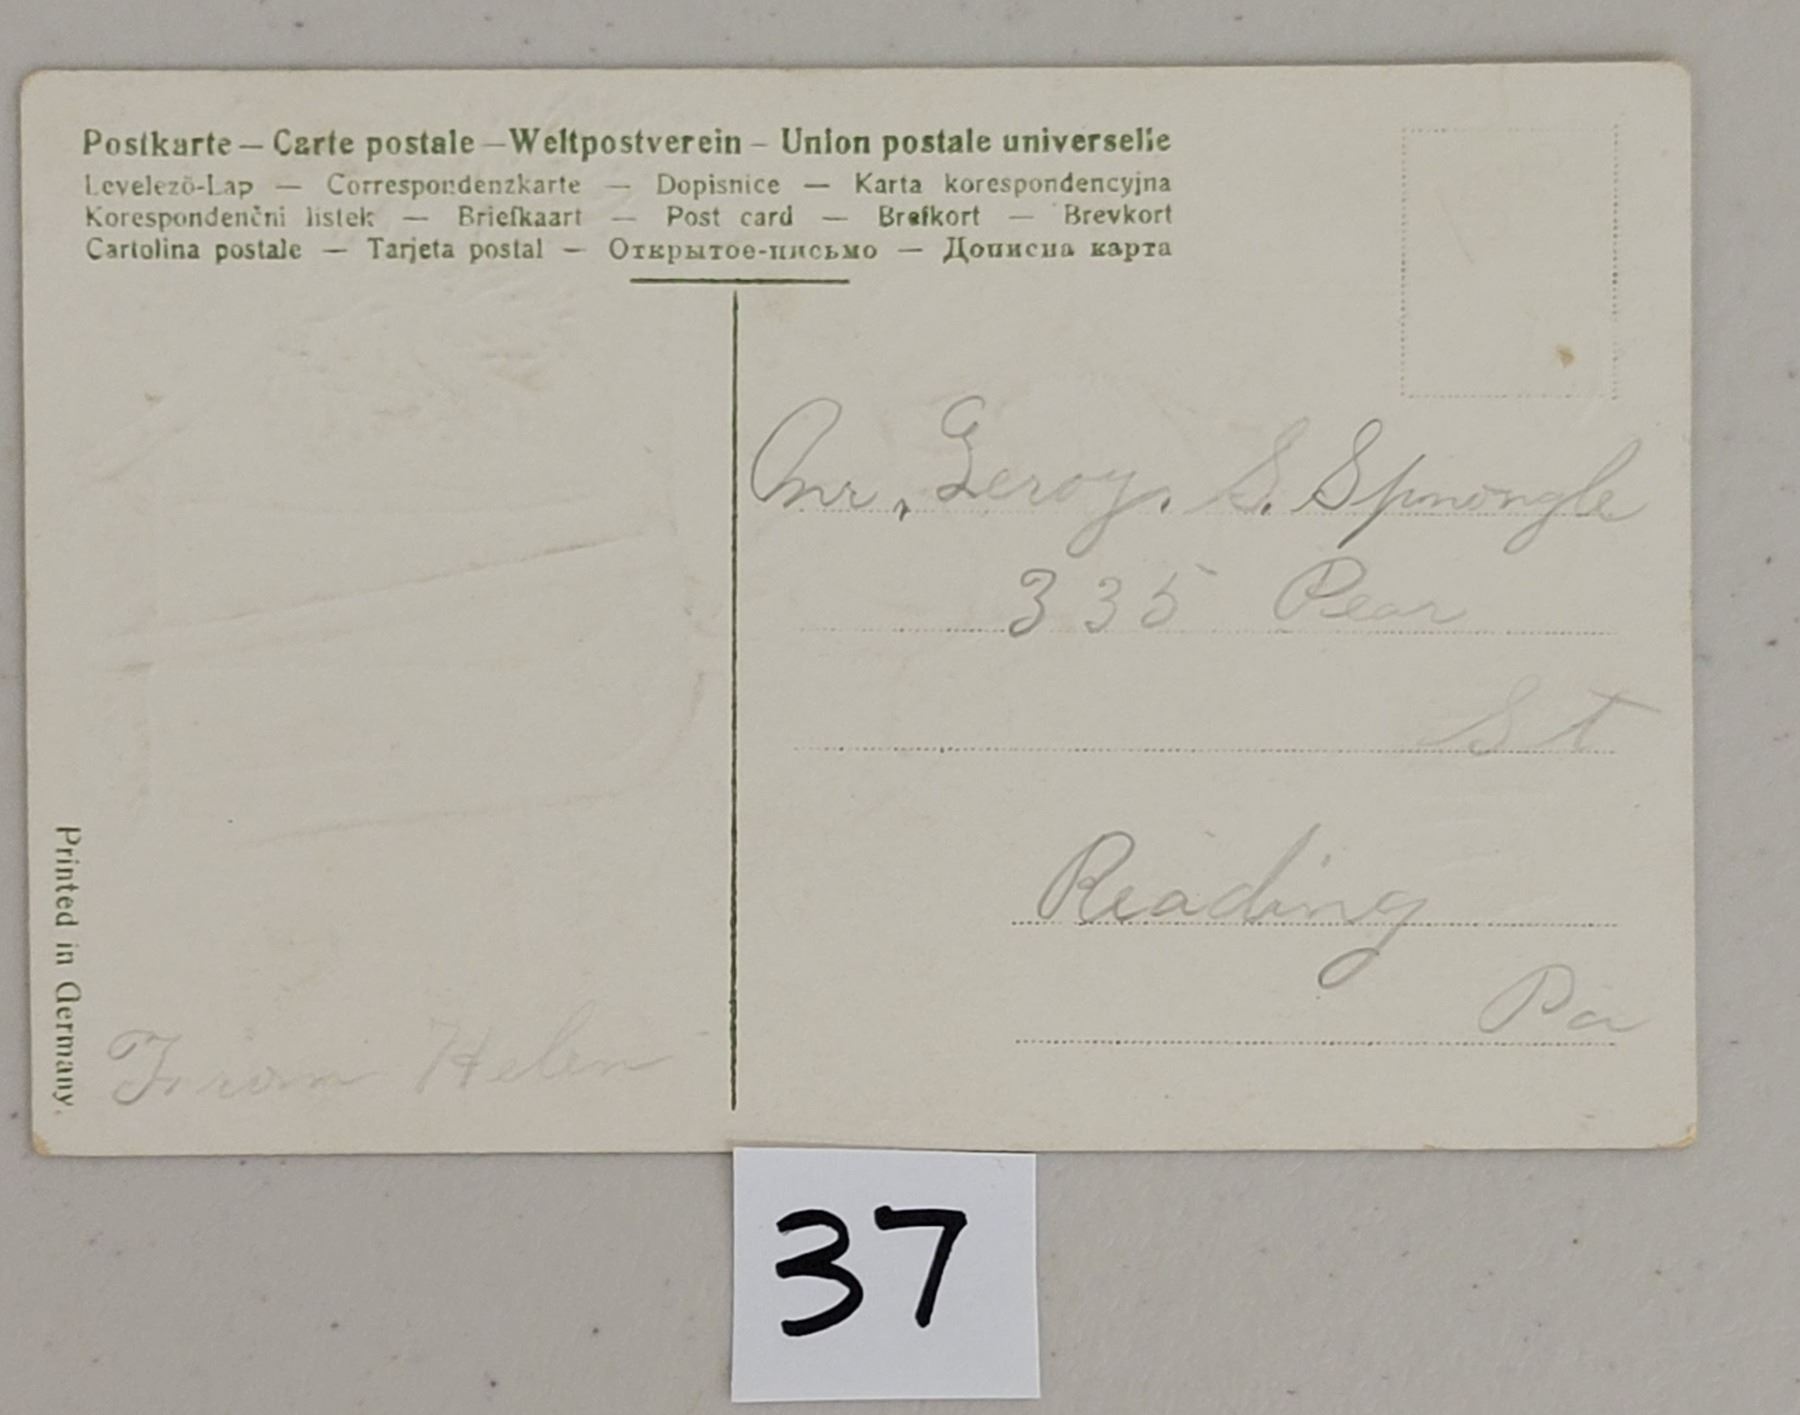 Postkarte — Carte postale — Weltpostverein — Union postale universelle
Levelezö-Lap — Correspondenzkarte — Dopisnice — Karta korespondencyjna
Korespondenční listek — Briefkaart — Post card — Brefkort — Brevkort
Cartolina postale — Tarjeta postal — Открытое-письмо — Дописна карта
Mr, Leroy. S.
335 Pear
St
Reading
Pa
From Helen
Printed in Germany.
37